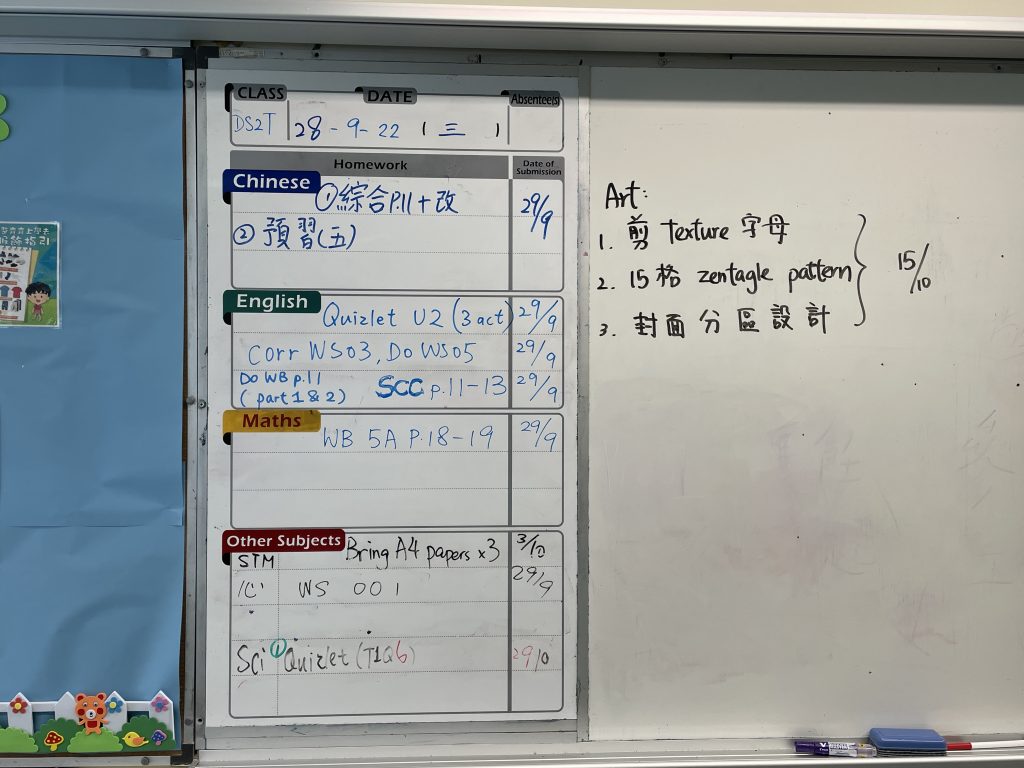 CLASS DATE Absentee(s)
DS2T 28-9-22 (三)
Homework Date of Submission
Chinese ①綜合P.11+改 29/9
②預習(五)
English Quizlet U2 (3 act) 29/9
Corr WS03, Do WS05 29/9
Do WB p.11
(part 1 & 2) SCC p.11-13 29/9
Maths WB 5A P.18-19 29/9
Other Subjects Bring A4 papers x3 3/10
STM
心 WS 001 29/9
Sci ① Quizlet (T1Q6) 29/0
Art:
1. 剪 Texture 字母
2. 15格 zentagle pattern
3. 封面分區設計
15/10
服飾指引